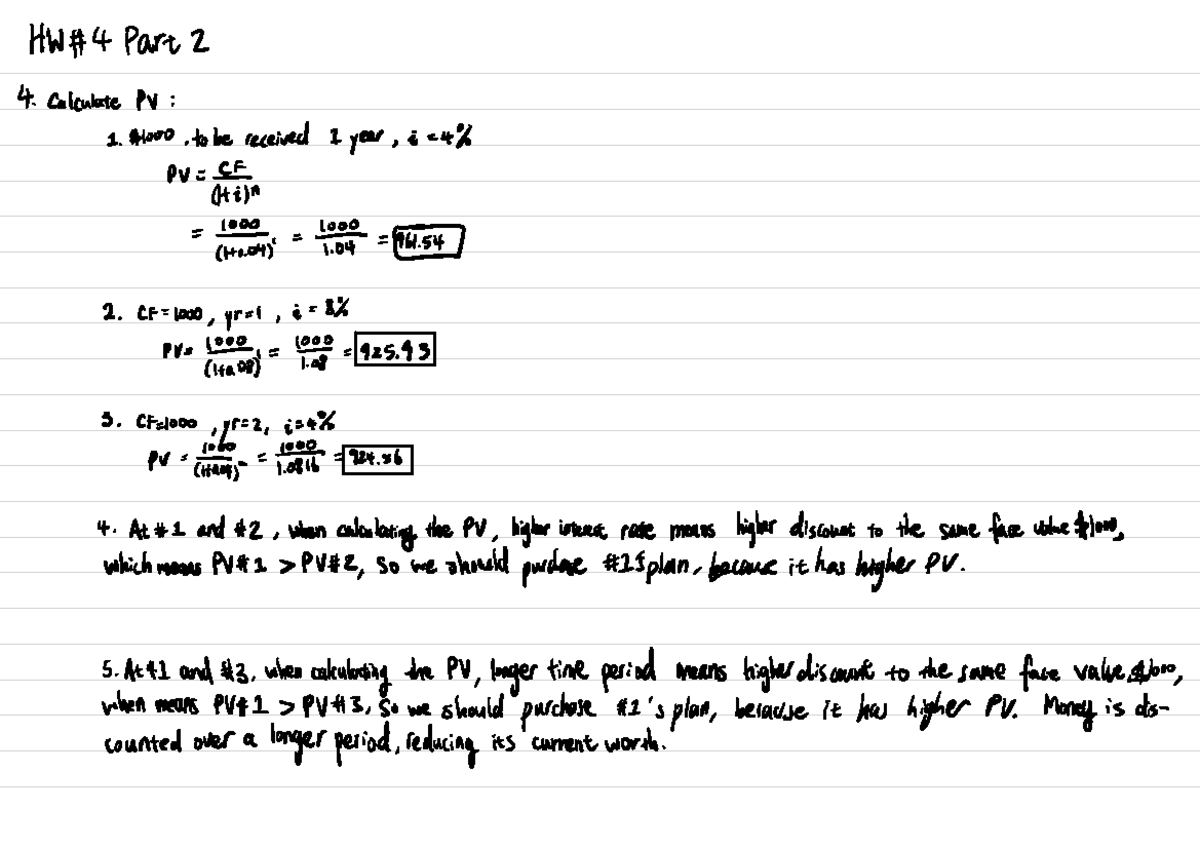 HW#4 Part 2
4. Calculate PV :
1. $1000, to be received 1 year, i = 4%
PV = CF/(1+i)^n
= 1000/(1+0.04)^1 = 1000/1.04 = 961.54
2. CF = 1000, yr=1, i = 8%
PV= 1000/(1+0.08)^1 = 1000/1.08 = 925.93
3. CF=1000, yr=2, i=4%
PV = 1000/(1+0.04)^2 = 1000/1.0816 = 924.56
4. At #1 and #2, when calculating the PV, higher interest rate means higher discount to the same face value $1000,
which means PV#1 > PV#2, so we should purchase #1's plan, because it has higher PV.
5. At #1 and #3, when calculating the PV, longer time period means higher discount to the same face value $1000,
when means PV#1 > PV#3, so we should purchase #1's plan, because it has higher PV. Money is dis-
counted over a longer period, reducing its current worth.